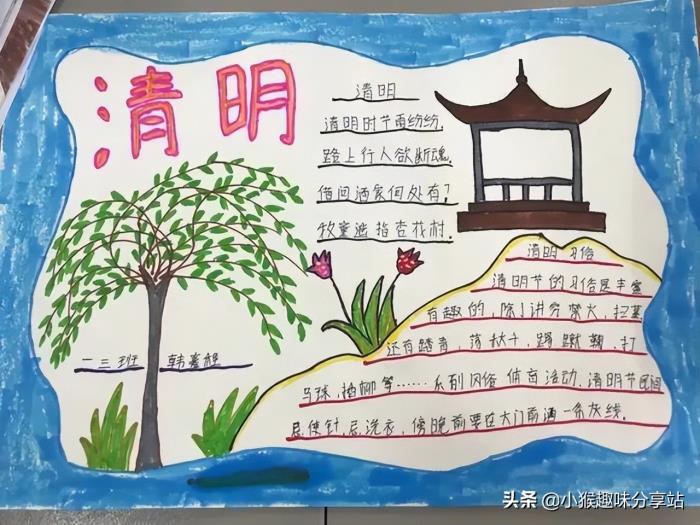 清明
清明
清明时节雨纷纷,
路上行人欲断魂.
借问酒家何处有?
牧童遥指杏花村.
清明习俗
清明节的习俗是丰富
有趣的,除了讲究禁火、扫墓
还有踏青、荡秋千、蹴鞠、打
马球,插柳等……系列风俗体育活动.清明节民间
忌使针,忌洗衣,傍晚前要在大门前洒一条灰线.
一三班
头条@小猴趣味分享站